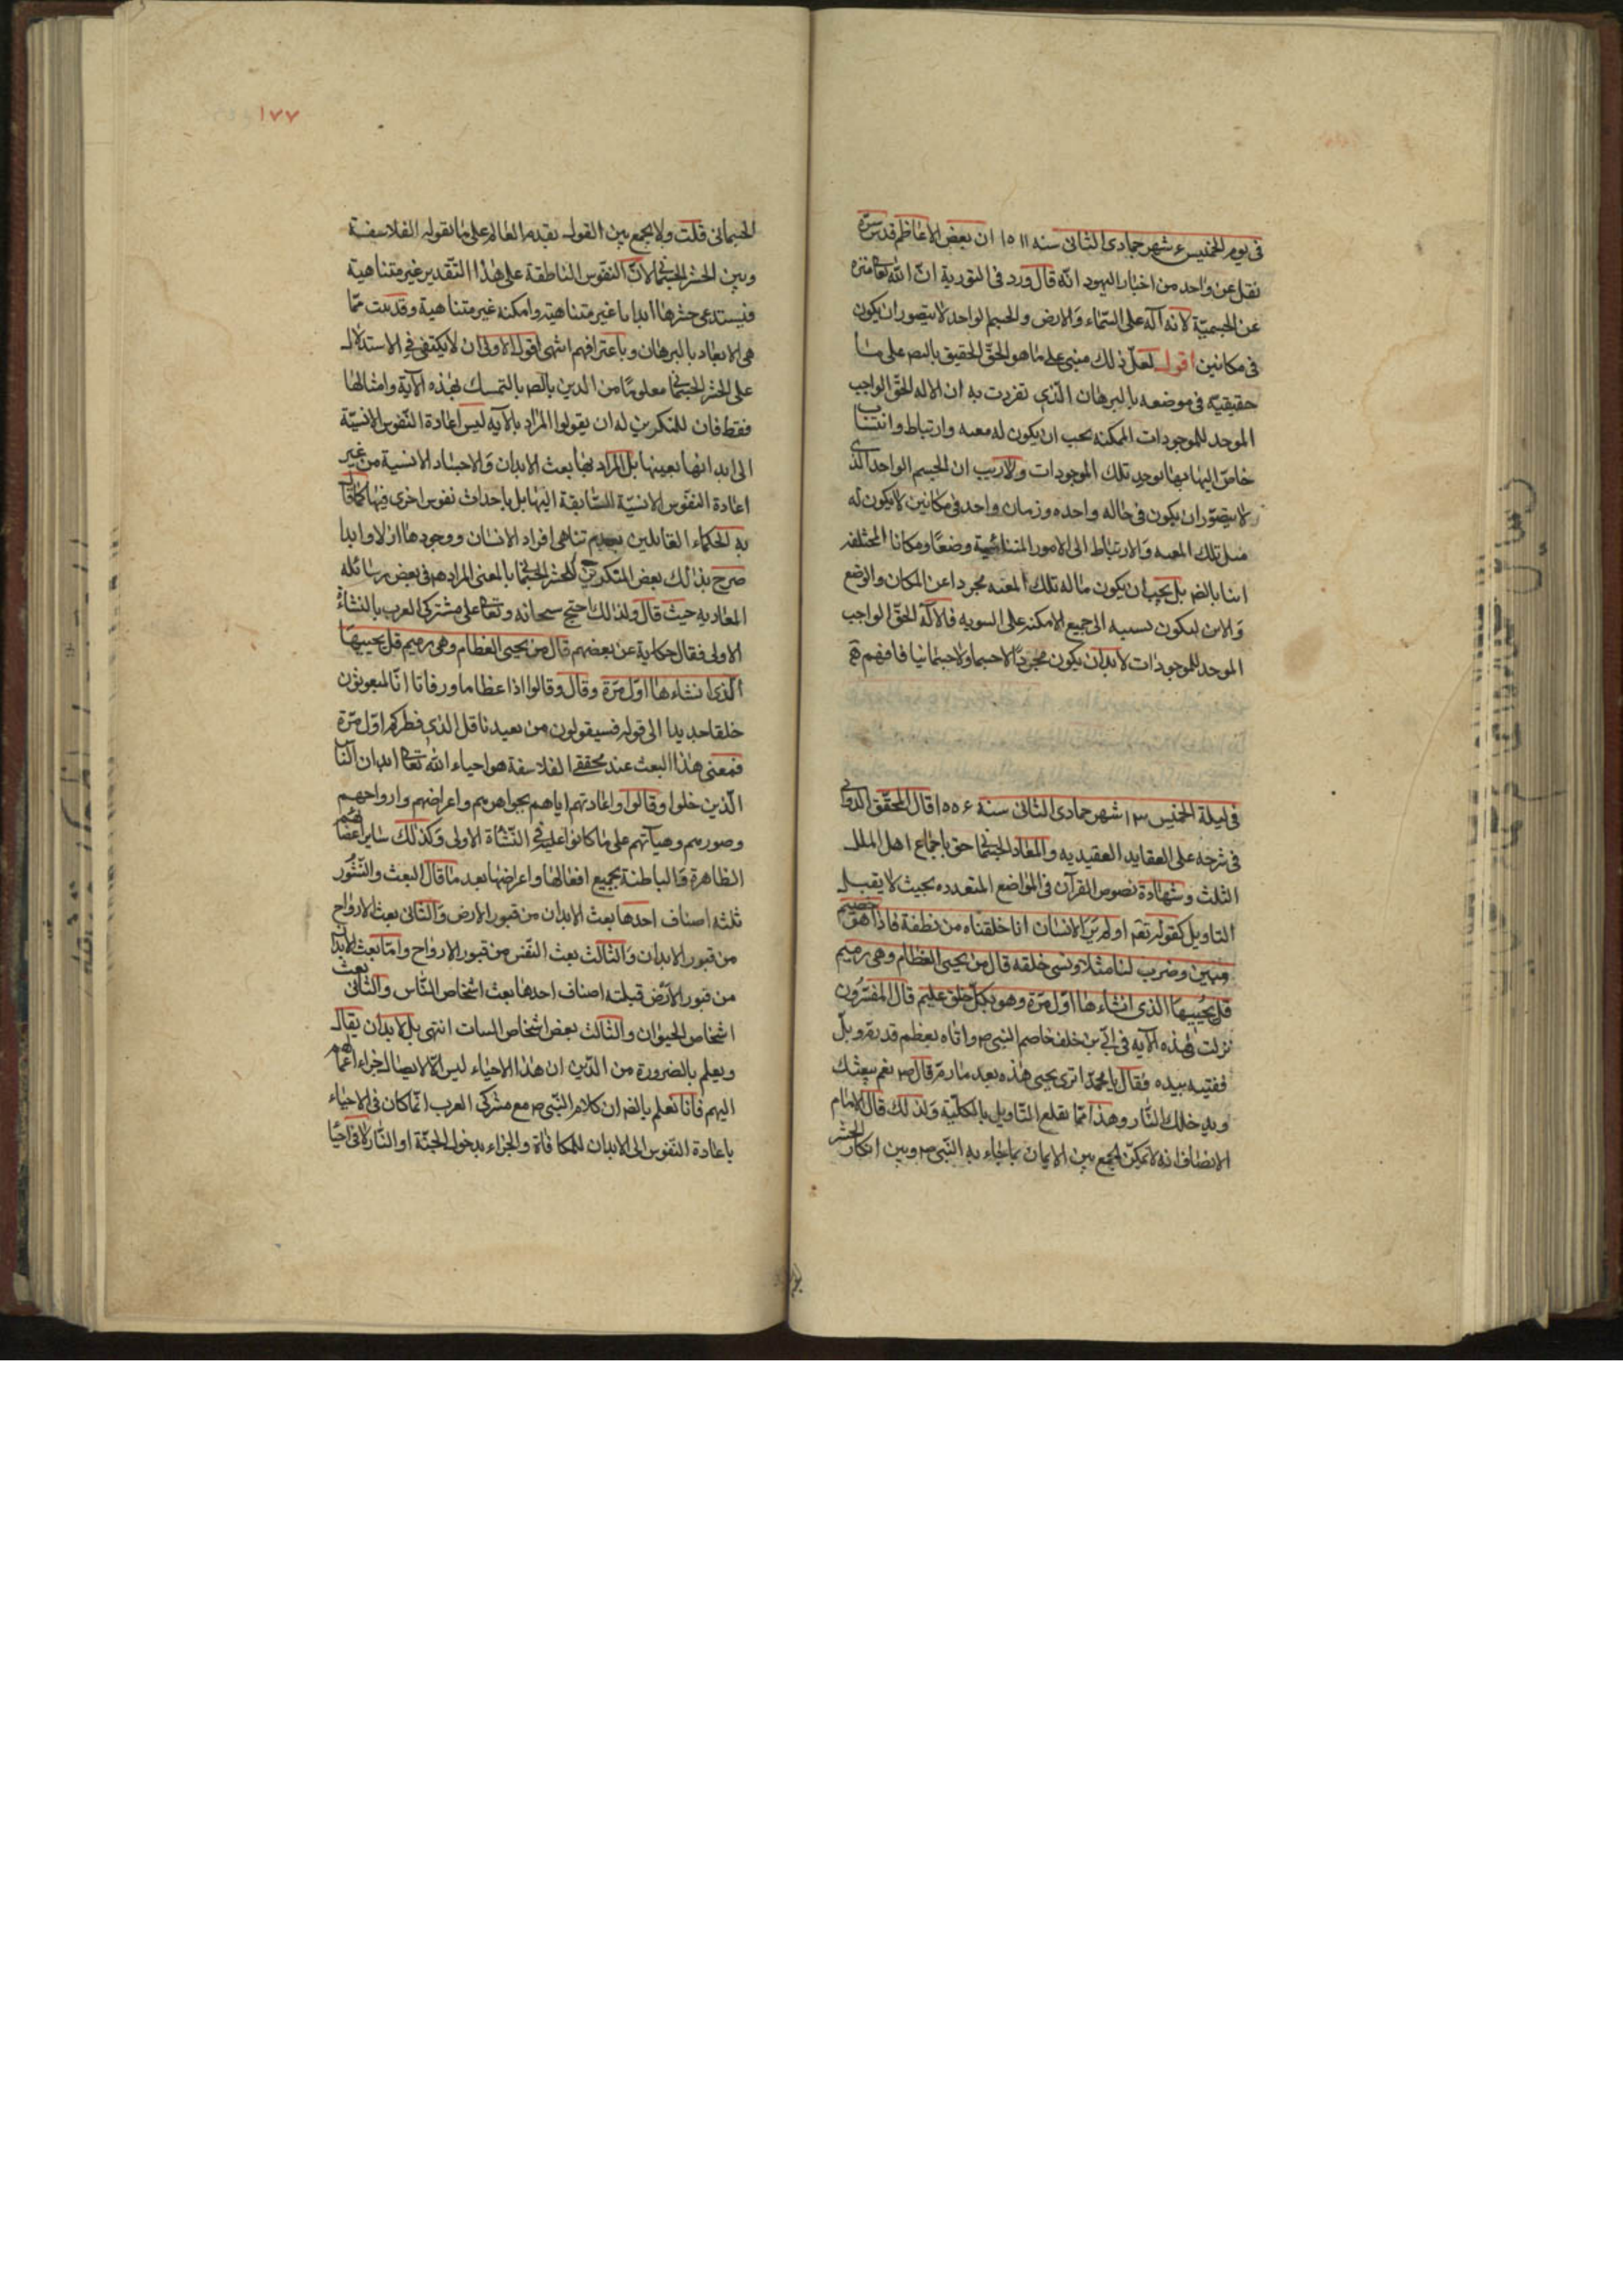 في يوم الخميس ٤ شهر جمادى الثاني سنه ١٥١١ ان بعض الاعاظم قدس سره
نقل عن واحد من اخبار اليهود انّه قال ورد في التورية انّ الله تعا منزه
عن الجسميّة لانه آله على السّماء والارض والجسم الواحد لا يتصور ان يكون
في مكانين اقول لعلّ ذلك مبني على ما هو الحقّ الحقيق بالنصر على ما
حقيقيه في موضعه بالبرهان الّذي تفردت به ان الاله الحقّ الواجب
الموجد للموجودات الممكنه يجب ان يكون له معيه وارتباط وانتساب
خاصّ اليها بها توجد تلك الموجودات ولاريب ان الجسم الواحد الذي
لا يتصوّر ان يكون في حاله واحده وزمان واحد في مكانين لا يكون له
مثل تلك المعيه والارتباط الى الامور المتنائية وضعًا ومكانا المختلفه
اينا بالضر بل يجب ان يكون ما له تلك المعيه مجردا عن المكان والوضع
والاين ليكون نسبته الى جميع الامكنه على السويه فالآله الحقّ الواجب
الموجد للموجودات لابد ان يكون مجردًا لا جسما ولا جسمانيا فافهم
في ليلة الخميس ١٣ شهر جمادى الثاني سنة ١٥٥٤ قال المحقّق الدواني
في شرحه على العقايد العضديه والمعاد الجسماني حق باجماع اهل الملل
الثلث وشهادة نصوص القرآن في المواضع المتعدده بحيث لا يقبل
التاويل كقوله تعم اولم يرَ الانسان انا خلقناه من نطفة فاذا هو خصيم
مبين وضرب لنا مثلا ونسي خلقه قال من يحيي العظام وهي رميم
قل يحييها الذي انشاءها اوّل مرّة وهو بكلّ خلق عليم قال المفسّرون
نزلت هذه الآيه في ابيّ بن خلف خاصم النبي ص واتاه بعظم قد رمّ وبلّ
ففتته بيده وقال يا محمّد اترى يحيي هذه بعد ما رمّ قال ص نعم يبعثك
ويدخلك النّار وهذا ممّا يقلع التّاويل بالكلّيّة ولذلك قال الامام
الانصاف انه لا يمكن الجمع بين الايمان بما جاء به النّبي ص وبين انكار الحشر
١٧٧
الجسماني قلت ولا يجمع بين القول بقدم العالم على ما يقوله الفلاسفة
وبين الحشر الجسماني لانّ النفوس الناطقة على هذا التّقدير غير متناهية
فيستدعي حشرها ابدانا غير متناهيه وامكنه غير متناهية وقد ثبت
تناهي الابعاد بالبرهان وباعترافهم انتهى اقول الاولى ان لا يكتفى في الاستدلال
على الحشر الجسماني معلومًا من الدين بالضر بالتمسك بهذه الآية وامثالها
فقط فان للمنكرين له ان يقولوا المراد بالآيه ليس اعادة النّفوس الانسيّة
الى ابدانها بعينها بل المراد بها بعث الابدان والاجساد الانسية من غير
اعادة النفوس الانسيّة السّابقة اليها بل باحداث نفوس اخرى فيها كما قال
به الحكماء القائلين بعدم تناهي افراد الانسان ووجودها ازلا وابدا
صرح بذلك بعض المنكرين للحشر الجسماني بالمعنى المراد هم في بعض رسائله
المعاديه حيث قال ولذلك احتج سبحانه وتعا على مشتركي العرب بالنشاة
الاولى فقال حكاية عن بعضهم قال من يحيي العظام وهي رميم قل يحييها
الّذي انشاءها اوّل مرّة وقال وقالوا اذا عظاما ورفاتا انّا لمبعوثون
خلقا جديدا الى قوله فسيقولون من يعيدنا قل الذي فطركم اوّل مرّة
فمعنى هذا البعث عند محققي الفلاسفة هو احياء الله تعا ابدان النّاس
الّذين خلوا وقالوا واعادتهم اياهم بجواهرهم واعراضهم وارواحهم
وصورهم وهيآتهم على ما كانوا عليه في النّشأة الاولى وكذلك ساير اعضائهم
الظاهرة والباطنة بجميع افعالها واعراضها بعد ما قال البعث والنّشور
ثلثه اصناف احدها بعث الابدان من قبور الارض والثاني بعث الارواح
من قبور الابدان والثالث بعث النّفس من قبور الارواح وامّا بعث الابدان
من قبور الارض فثلثه اصناف احدها بعث اشخاص النّاس والثاني بعث
اشخاص الحيوان والثالث بعض اشخاص النبات انتهى بل لابد ان يقال
ويعلم بالضرورة من الدّين ان هذا الاحياء ليس الّا لايصال جزاء اعمالهم
اليهم فانا نعلم بالضر ان كلام النّبي ص مع مشركي العرب انّما كان في الاحياء
باعادة النّفوس الى الابدان للمكافاة والجزاء بدخول الجنّة او النّار لا في احيا